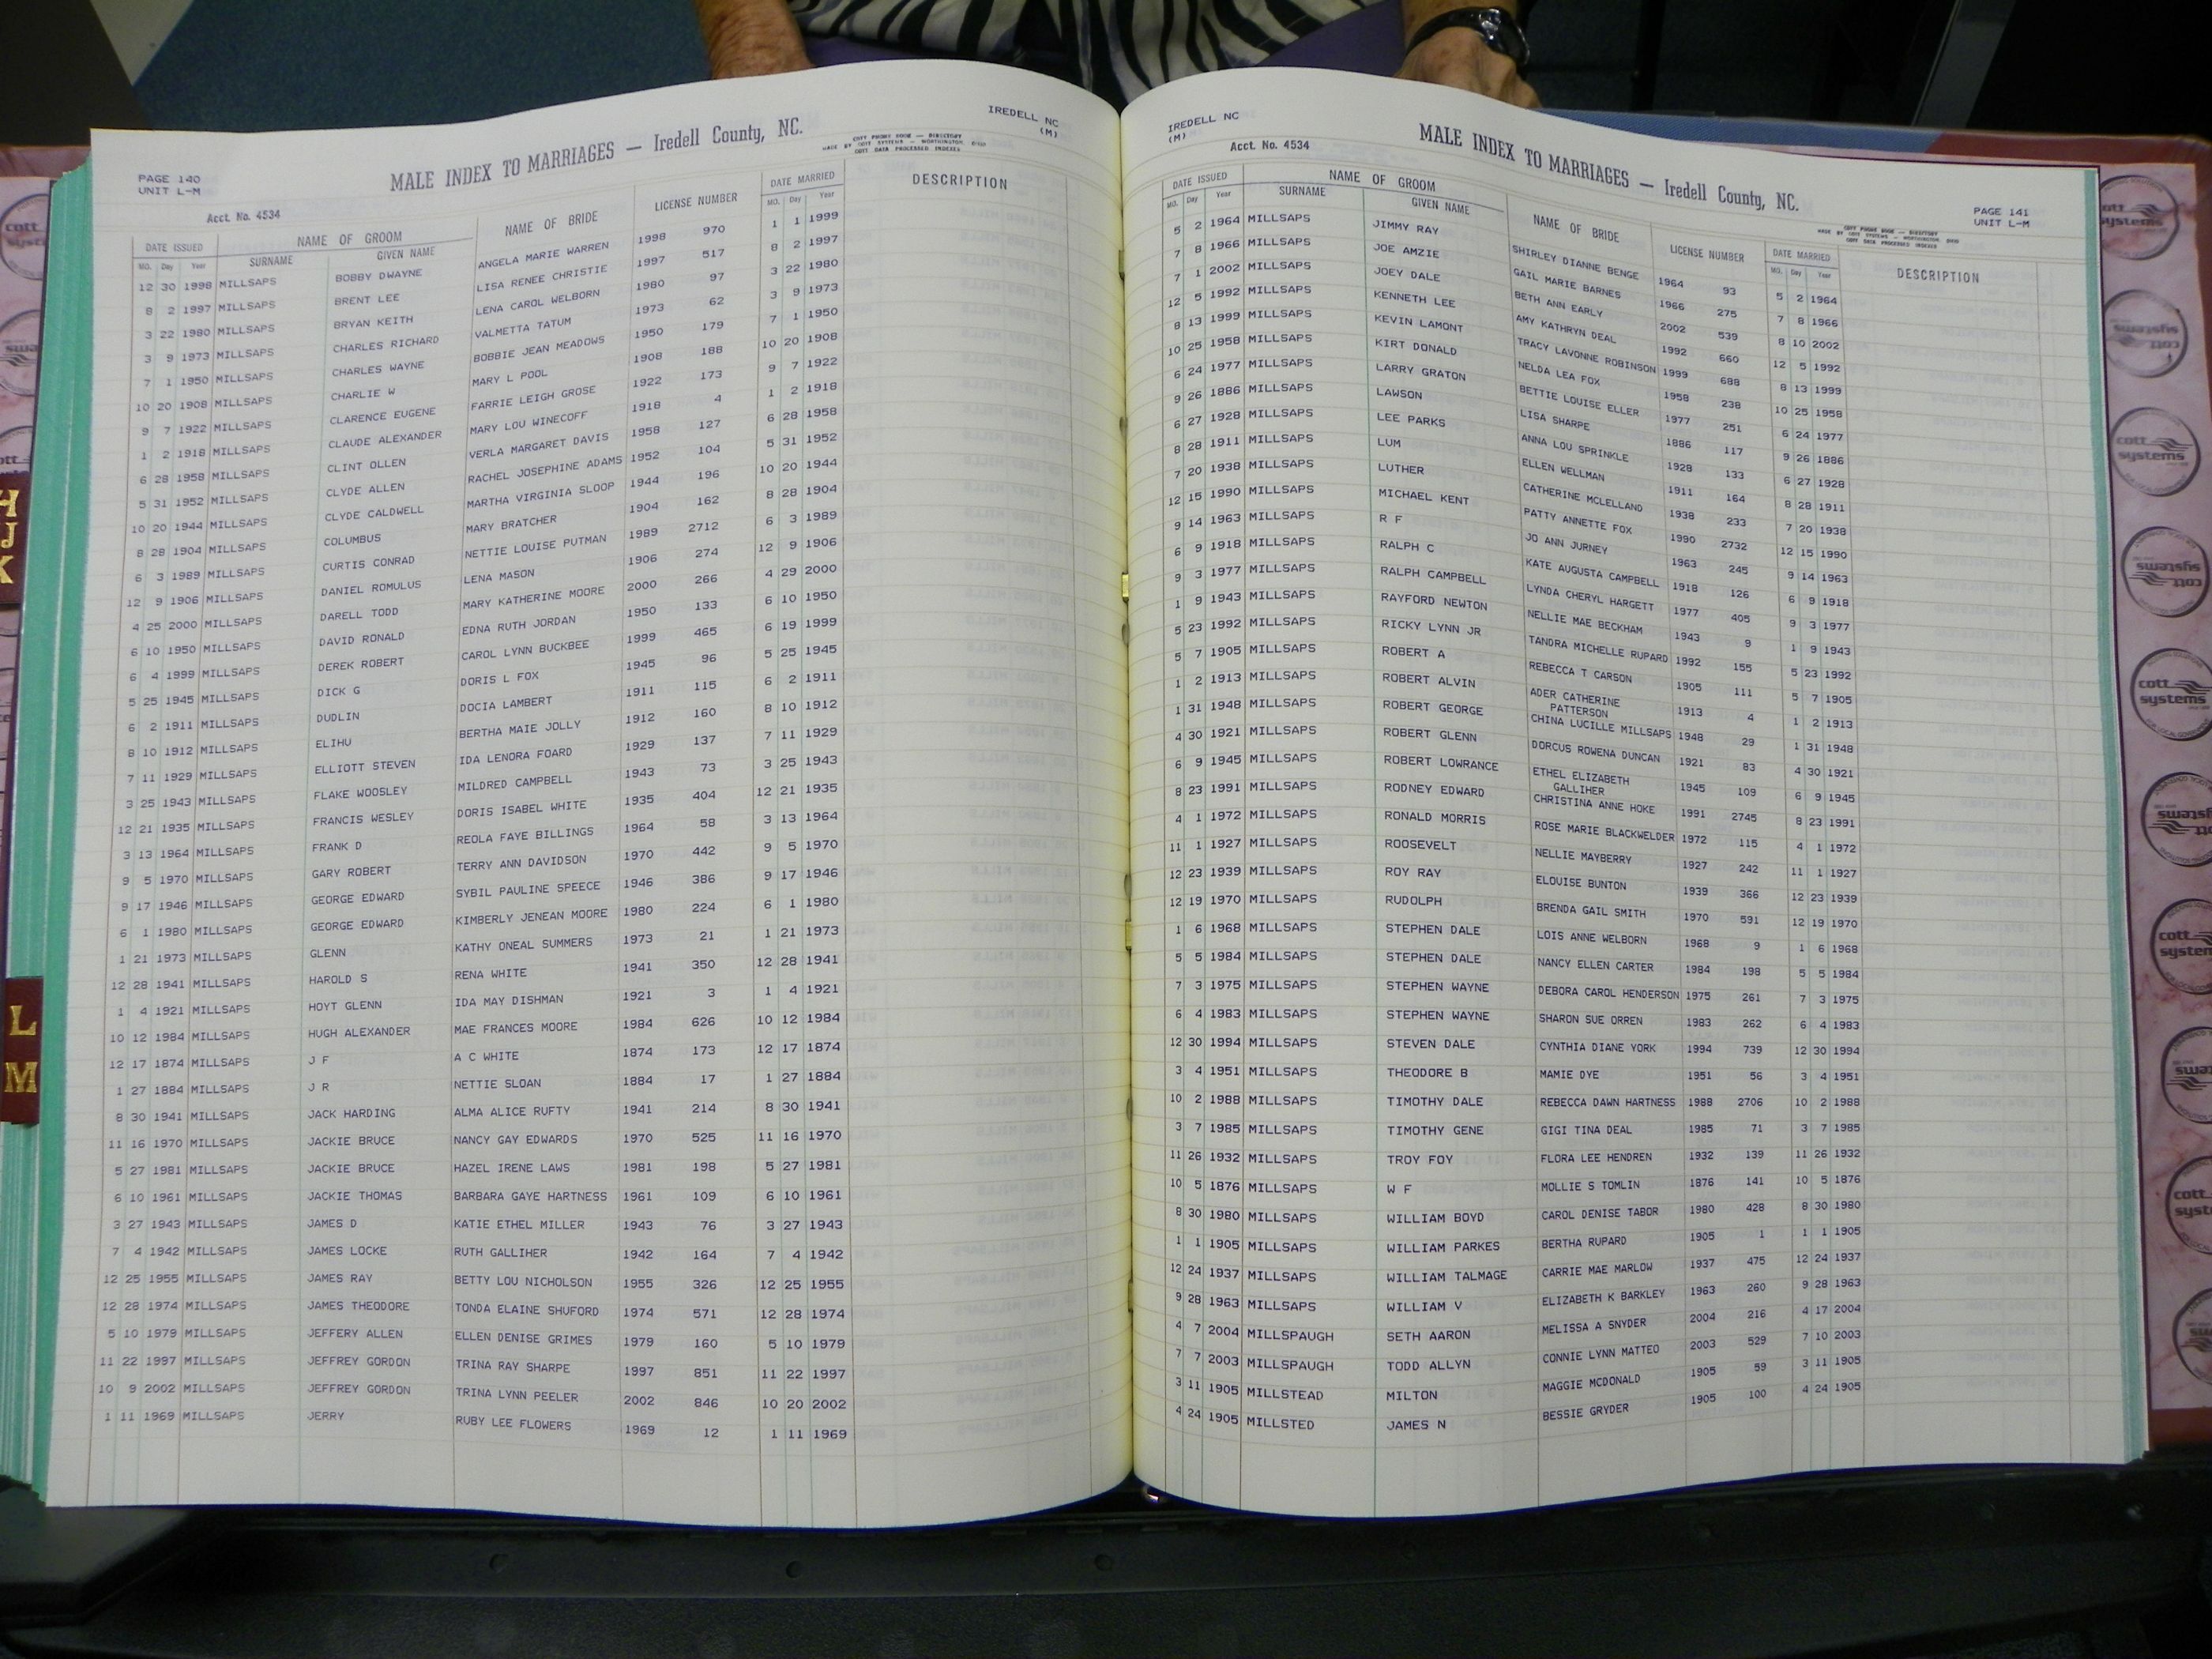 IREDELL NC
(M)
MALE INDEX TO MARRIAGES — Iredell County, NC.
COTT PHONE BOOK — DIRECTORY
MADE BY COTT SYSTEMS — WORTHINGTON, OHIO
COTT DATA PROCESSED INDEXES
PAGE 140
UNIT L-M
Acct. No. 4534
DATE ISSUED NAME OF GROOM NAME OF BRIDE LICENSE NUMBER DATE MARRIED DESCRIPTION
MO. Day Year SURNAME GIVEN NAME MO. Day Year
12 30 1998 MILLSAPS BOBBY DWAYNE ANGELA MARIE WARREN 1998 970 1 1 1999
8 2 1997 MILLSAPS BRENT LEE LISA RENEE CHRISTIE 1997 517 8 2 1997
3 22 1980 MILLSAPS BRYAN KEITH LENA CAROL WELBORN 1980 97 3 22 1980
3 9 1973 MILLSAPS CHARLES RICHARD VALMETTA TATUM 1973 62 3 9 1973
7 1 1950 MILLSAPS CHARLES WAYNE BOBBIE JEAN MEADOWS 1950 179 7 1 1950
10 20 1908 MILLSAPS CHARLIE W MARY L POOL 1908 188 10 20 1908
9 7 1922 MILLSAPS CLARENCE EUGENE FARRIE LEIGH GROSE 1922 173 9 7 1922
1 2 1918 MILLSAPS CLAUDE ALEXANDER MARY LOU WINECOFF 1918 4 1 2 1918
6 28 1958 MILLSAPS CLINT OLLEN VERLA MARGARET DAVIS 1958 127 6 28 1958
5 31 1952 MILLSAPS CLYDE ALLEN RACHEL JOSEPHINE ADAMS 1952 104 5 31 1952
10 20 1944 MILLSAPS CLYDE CALDWELL MARTHA VIRGINIA SLOOP 1944 196 10 20 1944
8 28 1904 MILLSAPS COLUMBUS MARY BRATCHER 1904 162 8 28 1904
6 3 1989 MILLSAPS CURTIS CONRAD NETTIE LOUISE PUTMAN 1989 2712 6 3 1989
12 9 1906 MILLSAPS DANIEL ROMULUS LENA MASON 1906 274 12 9 1906
4 25 2000 MILLSAPS DARELL TODD MARY KATHERINE MOORE 2000 266 4 29 2000
6 10 1950 MILLSAPS DAVID RONALD EDNA RUTH JORDAN 1950 133 6 10 1950
6 4 1999 MILLSAPS DEREK ROBERT CAROL LYNN BUCKBEE 1999 465 6 19 1999
5 25 1945 MILLSAPS DICK G DORIS L FOX 1945 96 5 25 1945
6 2 1911 MILLSAPS DUDLIN DOCIA LAMBERT 1911 115 6 2 1911
8 10 1912 MILLSAPS ELIHU BERTHA MAIE JOLLY 1912 160 8 10 1912
7 11 1929 MILLSAPS ELLIOTT STEVEN IDA LENORA FOARD 1929 137 7 11 1929
3 25 1943 MILLSAPS FLAKE WOOSLEY MILDRED CAMPBELL 1943 73 3 25 1943
12 21 1935 MILLSAPS FRANCIS WESLEY DORIS ISABEL WHITE 1935 404 12 21 1935
3 13 1964 MILLSAPS FRANK D REOLA FAYE BILLINGS 1964 58 3 13 1964
9 5 1970 MILLSAPS GARY ROBERT TERRY ANN DAVIDSON 1970 442 9 5 1970
9 17 1946 MILLSAPS GEORGE EDWARD SYBIL PAULINE SPEECE 1946 386 9 17 1946
6 1 1980 MILLSAPS GEORGE EDWARD KIMBERLY JENEAN MOORE 1980 224 6 1 1980
1 21 1973 MILLSAPS GLENN KATHY ONEAL SUMMERS 1973 21 1 21 1973
12 28 1941 MILLSAPS HAROLD S RENA WHITE 1941 350 12 28 1941
1 4 1921 MILLSAPS HOYT GLENN IDA MAY DISHMAN 1921 3 1 4 1921
10 12 1984 MILLSAPS HUGH ALEXANDER MAE FRANCES MOORE 1984 626 10 12 1984
12 17 1874 MILLSAPS J F A C WHITE 1874 173 12 17 1874
1 27 1884 MILLSAPS J R NETTIE SLOAN 1884 17 1 27 1884
8 30 1941 MILLSAPS JACK HARDING ALMA ALICE RUFTY 1941 214 8 30 1941
11 16 1970 MILLSAPS JACKIE BRUCE NANCY GAY EDWARDS 1970 525 11 16 1970
5 27 1981 MILLSAPS JACKIE BRUCE HAZEL IRENE LAWS 1981 198 5 27 1981
6 10 1961 MILLSAPS JACKIE THOMAS BARBARA GAYE HARTNESS 1961 109 6 10 1961
3 27 1943 MILLSAPS JAMES D KATIE ETHEL MILLER 1943 76 3 27 1943
7 4 1942 MILLSAPS JAMES LOCKE RUTH GALLIHER 1942 164 7 4 1942
12 25 1955 MILLSAPS JAMES RAY BETTY LOU NICHOLSON 1955 326 12 25 1955
12 28 1974 MILLSAPS JAMES THEODORE TONDA ELAINE SHUFORD 1974 571 12 28 1974
5 10 1979 MILLSAPS JEFFERY ALLEN ELLEN DENISE GRIMES 1979 160 5 10 1979
11 22 1997 MILLSAPS JEFFREY GORDON TRINA RAY SHARPE 1997 851 11 22 1997
10 9 2002 MILLSAPS JEFFREY GORDON TRINA LYNN PEELER 2002 846 10 20 2002
1 11 1969 MILLSAPS JERRY RUBY LEE FLOWERS 1969 12 1 11 1969
IREDELL NC
(M)
Acct. No. 4534
MALE INDEX TO MARRIAGES — Iredell County, NC.
COTT PHONE BOOK — DIRECTORY
MADE BY COTT SYSTEMS — WORTHINGTON, OHIO
COTT DATA PROCESSED INDEXES
PAGE 141
UNIT L-M
DATE ISSUED NAME OF GROOM NAME OF BRIDE LICENSE NUMBER DATE MARRIED DESCRIPTION
MO. Day Year SURNAME GIVEN NAME MO. Day Year
5 2 1964 MILLSAPS JIMMY RAY SHIRLEY DIANNE BENGE 1964 93 5 2 1964
7 8 1966 MILLSAPS JOE AMZIE GAIL MARIE BARNES 1966 275 7 8 1966
7 1 2002 MILLSAPS JOEY DALE BETH ANN EARLY 2002 539 8 10 2002
12 5 1992 MILLSAPS KENNETH LEE AMY KATHRYN DEAL 1992 660 12 5 1992
8 13 1999 MILLSAPS KEVIN LAMONT TRACY LAVONNE ROBINSON 1999 688 8 13 1999
10 25 1958 MILLSAPS KIRT DONALD NELDA LEA FOX 1958 238 10 25 1958
6 24 1977 MILLSAPS LARRY GRATON BETTIE LOUISE ELLER 1977 251 6 24 1977
9 26 1886 MILLSAPS LAWSON LISA SHARPE 1886 117 9 26 1886
6 27 1928 MILLSAPS LEE PARKS ANNA LOU SPRINKLE 1928 133 6 27 1928
8 28 1911 MILLSAPS LUM ELLEN WELLMAN 1911 164 8 28 1911
7 20 1938 MILLSAPS LUTHER CATHERINE MCLELLAND 1938 233 7 20 1938
12 15 1990 MILLSAPS MICHAEL KENT PATTY ANNETTE FOX 1990 2732 12 15 1990
9 14 1963 MILLSAPS R F JO ANN JURNEY 1963 245 9 14 1963
6 9 1918 MILLSAPS RALPH C KATE AUGUSTA CAMPBELL 1918 126 6 9 1918
9 3 1977 MILLSAPS RALPH CAMPBELL LYNDA CHERYL HARGETT 1977 405 9 3 1977
1 9 1943 MILLSAPS RAYFORD NEWTON NELLIE MAE BECKHAM 1943 9 1 9 1943
5 23 1992 MILLSAPS RICKY LYNN JR TANDRA MICHELLE RUPARD 1992 155 5 23 1992
5 7 1905 MILLSAPS ROBERT A REBECCA T CARSON 1905 111 5 7 1905
1 2 1913 MILLSAPS ROBERT ALVIN ADER CATHERINE 1913 4 1 2 1913
PATTERSON
1 31 1948 MILLSAPS ROBERT GEORGE CHINA LUCILLE MILLSAPS 1948 29 1 31 1948
4 30 1921 MILLSAPS ROBERT GLENN DORCUS ROWENA DUNCAN 1921 83 4 30 1921
6 9 1945 MILLSAPS ROBERT LOWRANCE ETHEL ELIZABETH 1945 109 6 9 1945
GALLIHER
8 23 1991 MILLSAPS RODNEY EDWARD CHRISTINA ANNE HOKE 1991 2745 8 23 1991
4 1 1972 MILLSAPS RONALD MORRIS ROSE MARIE BLACKWELDER 1972 115 4 1 1972
11 1 1927 MILLSAPS ROOSEVELT NELLIE MAYBERRY 1927 242 11 1 1927
12 23 1939 MILLSAPS ROY RAY ELOUISE BUNTON 1939 366 12 23 1939
12 19 1970 MILLSAPS RUDOLPH BRENDA GAIL SMITH 1970 591 12 19 1970
1 6 1968 MILLSAPS STEPHEN DALE LOIS ANNE WELBORN 1968 9 1 6 1968
5 5 1984 MILLSAPS STEPHEN DALE NANCY ELLEN CARTER 1984 198 5 5 1984
7 3 1975 MILLSAPS STEPHEN WAYNE DEBORA CAROL HENDERSON 1975 261 7 3 1975
6 4 1983 MILLSAPS STEPHEN WAYNE SHARON SUE ORREN 1983 262 6 4 1983
12 30 1994 MILLSAPS STEVEN DALE CYNTHIA DIANE YORK 1994 739 12 30 1994
3 4 1951 MILLSAPS THEODORE B MAMIE DYE 1951 56 3 4 1951
10 2 1988 MILLSAPS TIMOTHY DALE REBECCA DAWN HARTNESS 1988 2706 10 2 1988
3 7 1985 MILLSAPS TIMOTHY GENE GIGI TINA DEAL 1985 71 3 7 1985
11 26 1932 MILLSAPS TROY FOY FLORA LEE HENDREN 1932 139 11 26 1932
10 5 1876 MILLSAPS W F MOLLIE S TOMLIN 1876 141 10 5 1876
8 30 1980 MILLSAPS WILLIAM BOYD CAROL DENISE TABOR 1980 428 8 30 1980
1 1 1905 MILLSAPS WILLIAM PARKES BERTHA RUPARD 1905 1 1 1 1905
12 24 1937 MILLSAPS WILLIAM TALMAGE CARRIE MAE MARLOW 1937 475 12 24 1937
9 28 1963 MILLSAPS WILLIAM V ELIZABETH K BARKLEY 1963 260 9 28 1963
4 7 2004 MILLSPAUGH SETH AARON MELISSA A SNYDER 2004 216 4 17 2004
7 7 2003 MILLSPAUGH TODD ALLYN CONNIE LYNN MATTEO 2003 529 7 10 2003
3 11 1905 MILLSTEAD MILTON MAGGIE MCDONALD 1905 59 3 11 1905
4 24 1905 MILLSTED JAMES N BESSIE GRYDER 1905 100 4 24 1905
H
J
K
L
M
cott systems
cott systems
cott systems